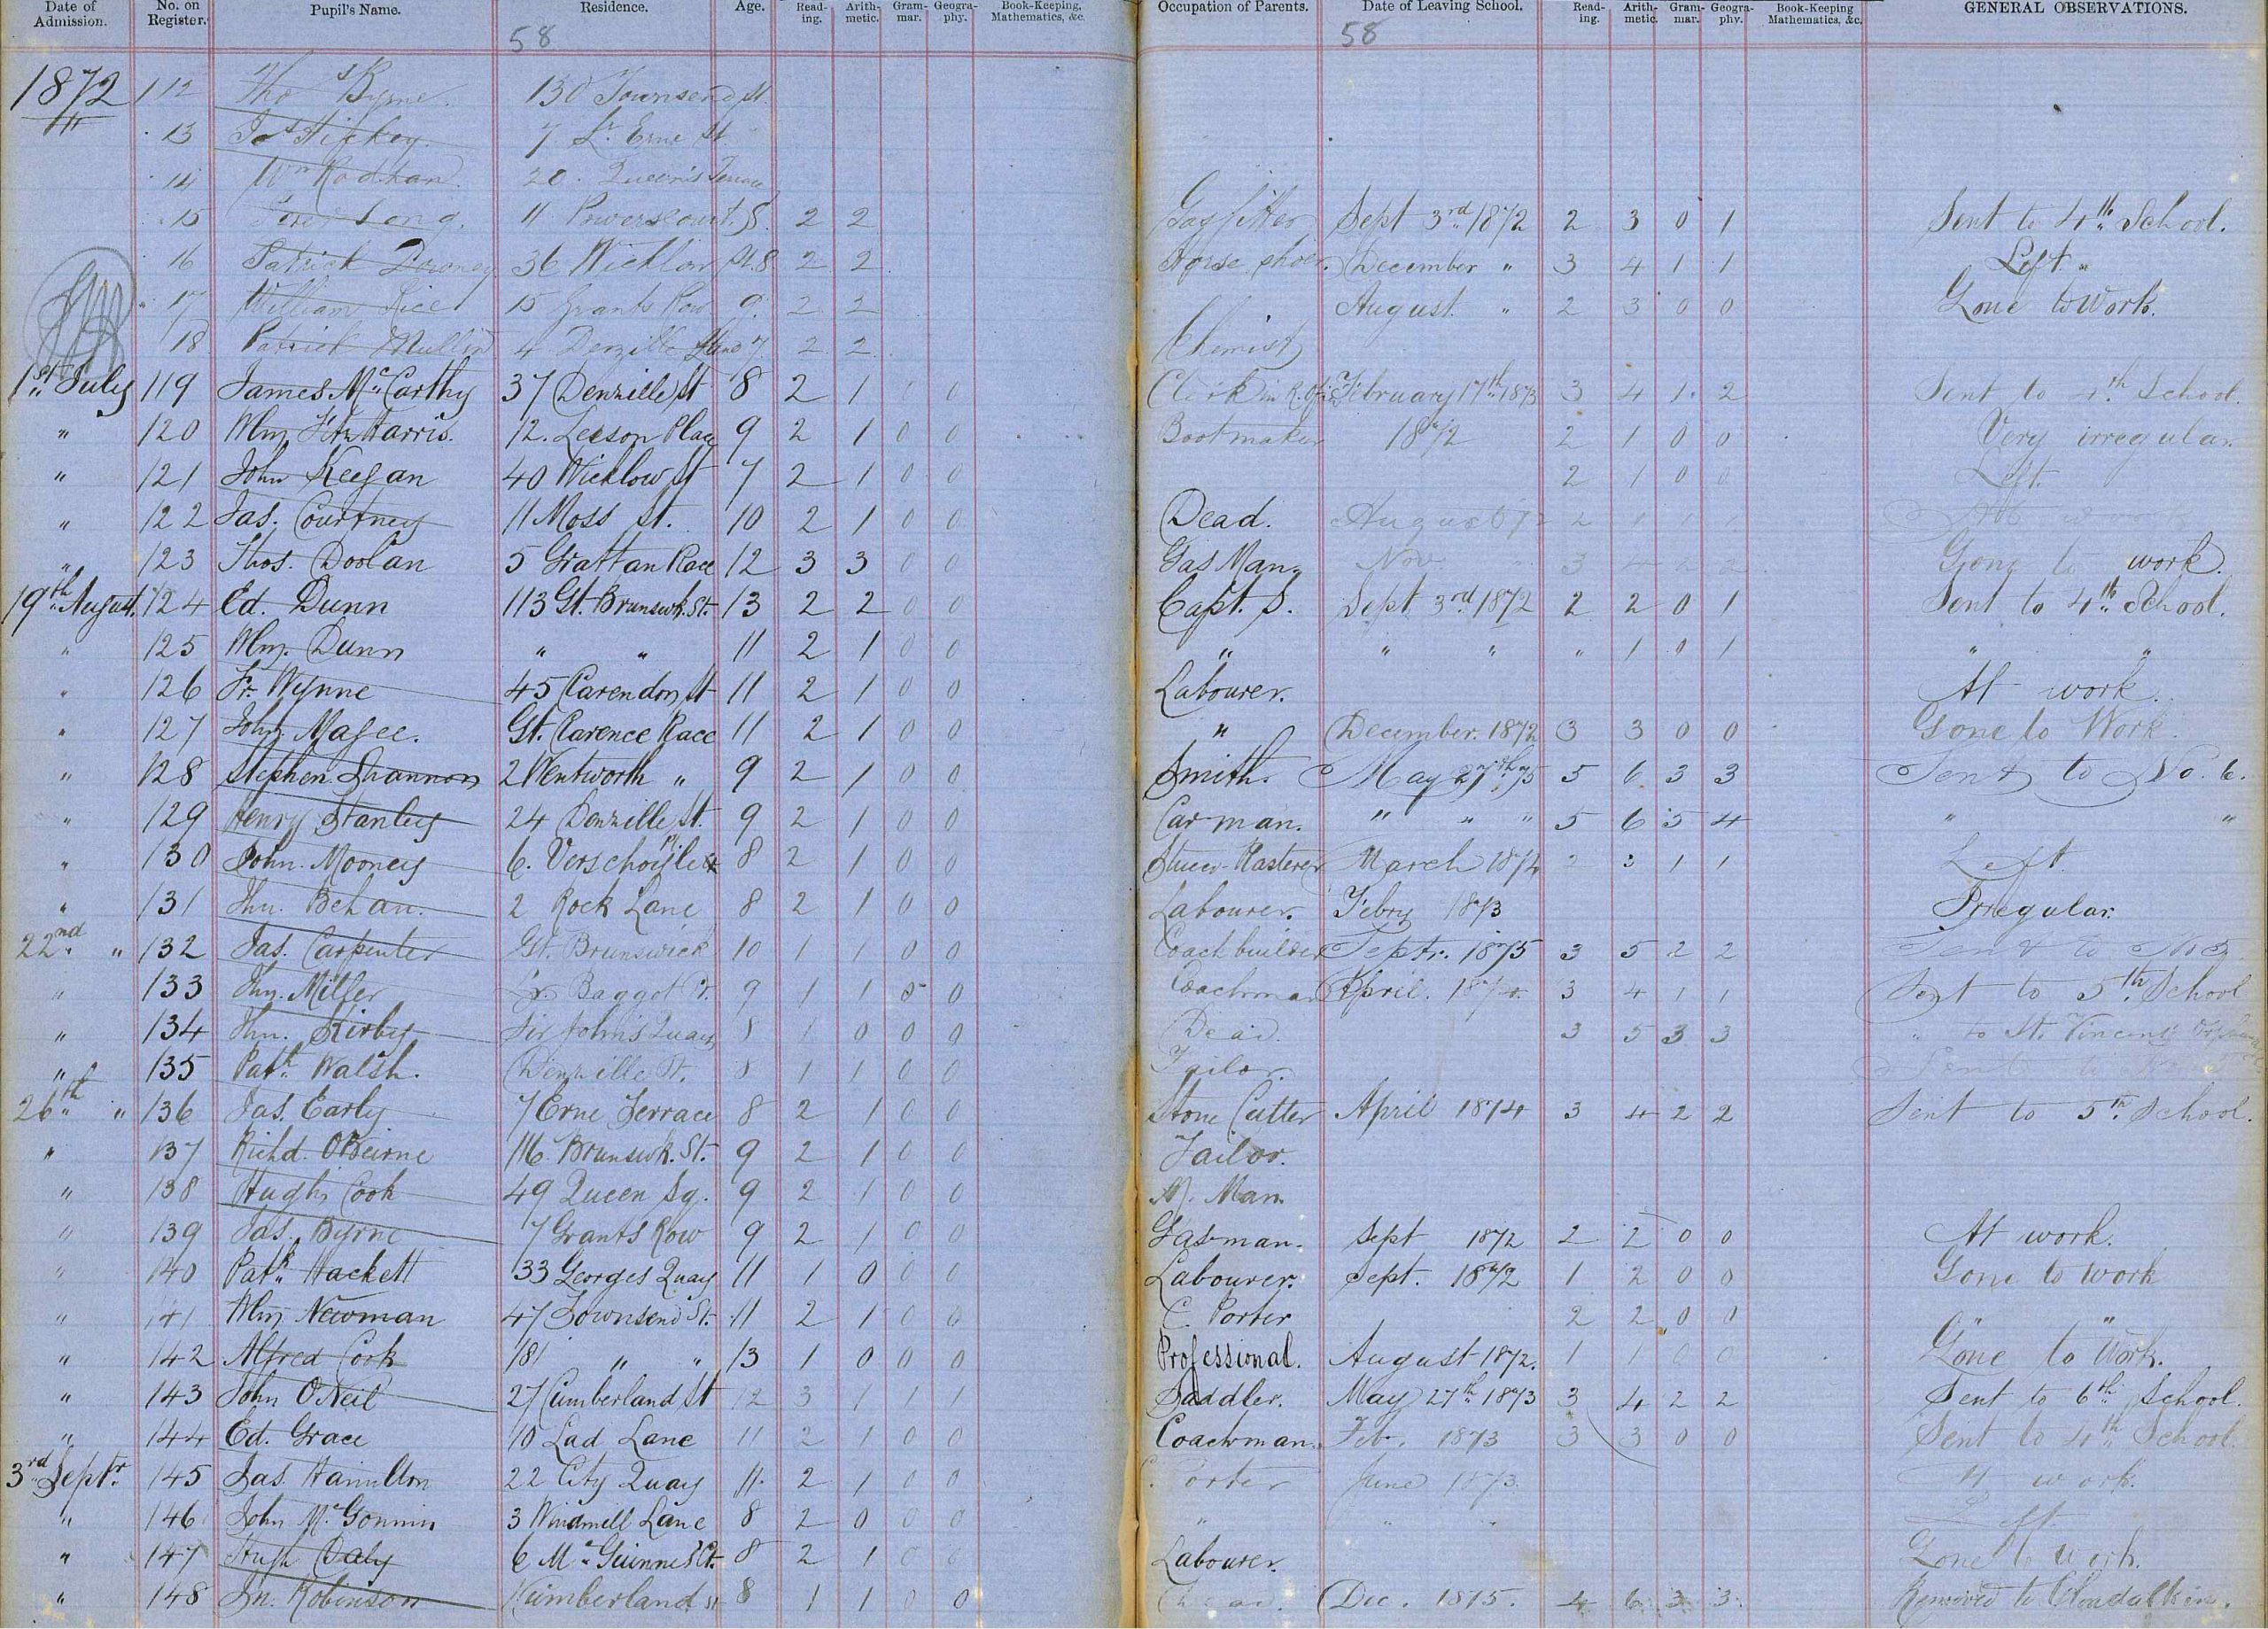 Date of Admission. No. on Register. Pupil's Name. Residence. Age. Read-ing. Arith-metic. Gram-mar. Geogra-phy. Book-Keeping, Mathematics, &c. Occupation of Parents. Date of Leaving School. Read-ing. Arith-metic. Gram-mar. Geogra-phy. Book-Keeping, Mathematics, &c. GENERAL OBSERVATIONS.
58 58
1872 112 Thos Byrne. 130 Townsend St.
13 Jas Hickey. 7 Lr. Erne St.
14 Wm Rodhan. 20 Queen's Terrace
15 Long. 11 Powerscourt. 8. 2 2 Gasfitter Sept 3rd 1872 2 3 0 1 Sent to 4th School.
16 Patrick Downey 36 Wicklow St. 8 2 2 Horse shoer. December " 3 4 1 1 Left "
17 William Rice 15 Grants Row 9. 2 2 August " 2 3 0 0 Gone to Work.
18 Patrick Mullin 4 Denzille Lane 7. 2 2 Chemist
1st July 119 James McCarthy 37 Denzille St 8 2 1 0 Clerk in R. February 17th 1873 3 4 1 2 Sent to 4th School.
" 120 Wm FitzHarris. 12. Leeson Place 9 2 1 0 0 Bootmaker 1872 2 1 0 0 Very irregular.
" 121 John Keegan 40 Wicklow St 7 2 1 0 0 2 1 0 0 Left.
" 122 Jas. Courtney 11 Moss St. 10 2 1 0 0 Dead. August 72 2
" 123 Thos. Doolan 5 Grattan Place 12 3 3 0 0 Gas Man. Nov 3 4 2 Gone to work.
19th August. 124 Ed. Dunn 113 Gt. Brunswk. St. 13 2 2 0 0 Capt. S. Sept 3rd 1872 2 2 0 1 Sent to 4th School.
" 125 Wm. Dunn " " 11 2 1 0 0 " " " " 1 0 1 " "
" 126 Fr. Wynne 45 Clarendon St 11 2 1 0 0 Labourer. At work.
" 127 John Magee. Gt. Clarence Place 11 2 1 0 0 " December. 1872 3 3 0 0 Gone to Work.
" 128 Stephen Shannon 2 Wentworth " 9 2 1 0 0 Smith. May 27th 75 5 6 3 3 Sent to No. 6.
" 129 Henry Stanley 24 Denzille St. 9 2 1 0 0 Carman. " " " 5 6 5 4 " "
" 130 John. Mooney 6. Verschoyle Ct 8 2 1 0 0 Stucco-Plasterer March 1874 3 1 1 Left
" 131 Jhn. Behan. 2 Rock Lane 8 2 1 0 0 Labourer. Febry 1873 Irregular.
22nd " 132 Jas. Carpenter Gt. Brunswick 10 1 1 0 0 Coach builder Septr. 1875 3 5 2 2 Sent to No
" 133 Jhn. Miller Baggot St. 9 1 1 0 0 Coachman April. 1874 3 4 1 1 Sent to 5th School
" 134 Jhn. Kirby Sir John's Quay 8 1 0 0 0 Dead 3 5 3 3 " to St. Vincent's
" 135 Patk Walsh. Denzille St. 8 1 1 0 0 Tailor.
26th " 136 Jas. Early 7 Erne Terrace 8 2 1 0 0 Stone Cutter April 1874 3 4 2 2 Sent to 5th School.
" 137 Richd. O'Beirne 116. Brunswk. St. 9 2 1 0 0 Tailor.
" 138 Hugh Cook 49 Queen Sq. 9 2 1 0 0 M. Man
" 139 Jas. Byrne 7 Grants Row 9 2 1 0 0 Gasman. Sept 1872 2 2 0 0 At work.
" 140 Patk Hackett 33 Georges Quay 11 1 0 0 0 Labourer. Sept. 1872 1 2 0 0 Gone to work
" 141 Wm Newman 47 Townsend St. 11 2 1 0 0 C. Porter 2 2 0 0 " "
" 142 Alfred Cook 181 " " 13 1 0 0 0 Professional. August 1872. 1 1 0 0 Gone to Work.
" 143 John O'Neil 27 Cumberland St 12 3 1 1 Saddler. May 27th 1873 3 4 2 2 Sent to 6th School.
" 144 Ed. Grace 10 Lad Lane 11 2 1 0 0 Coachman. Feb. 1873 3 3 0 0 Sent to 4th School.
3rd Septr. 145 Jas. Hamilton 22 City Quay 11. 2 1 0 0 Porter June 1873. At work.
" 146 John McGonnin 3 Windmill Lane 8 2 0 0 0 " " Left
" 147 Hugh Daly 6 McGuinnes Ct. 8 2 1 0 0 Labourer. Gone to work.
" 148 Jn. Robinson Cumberland St 8 1 1 0 0 Dec. 1875. 4 6 3 3 Removed to Clondalkin.